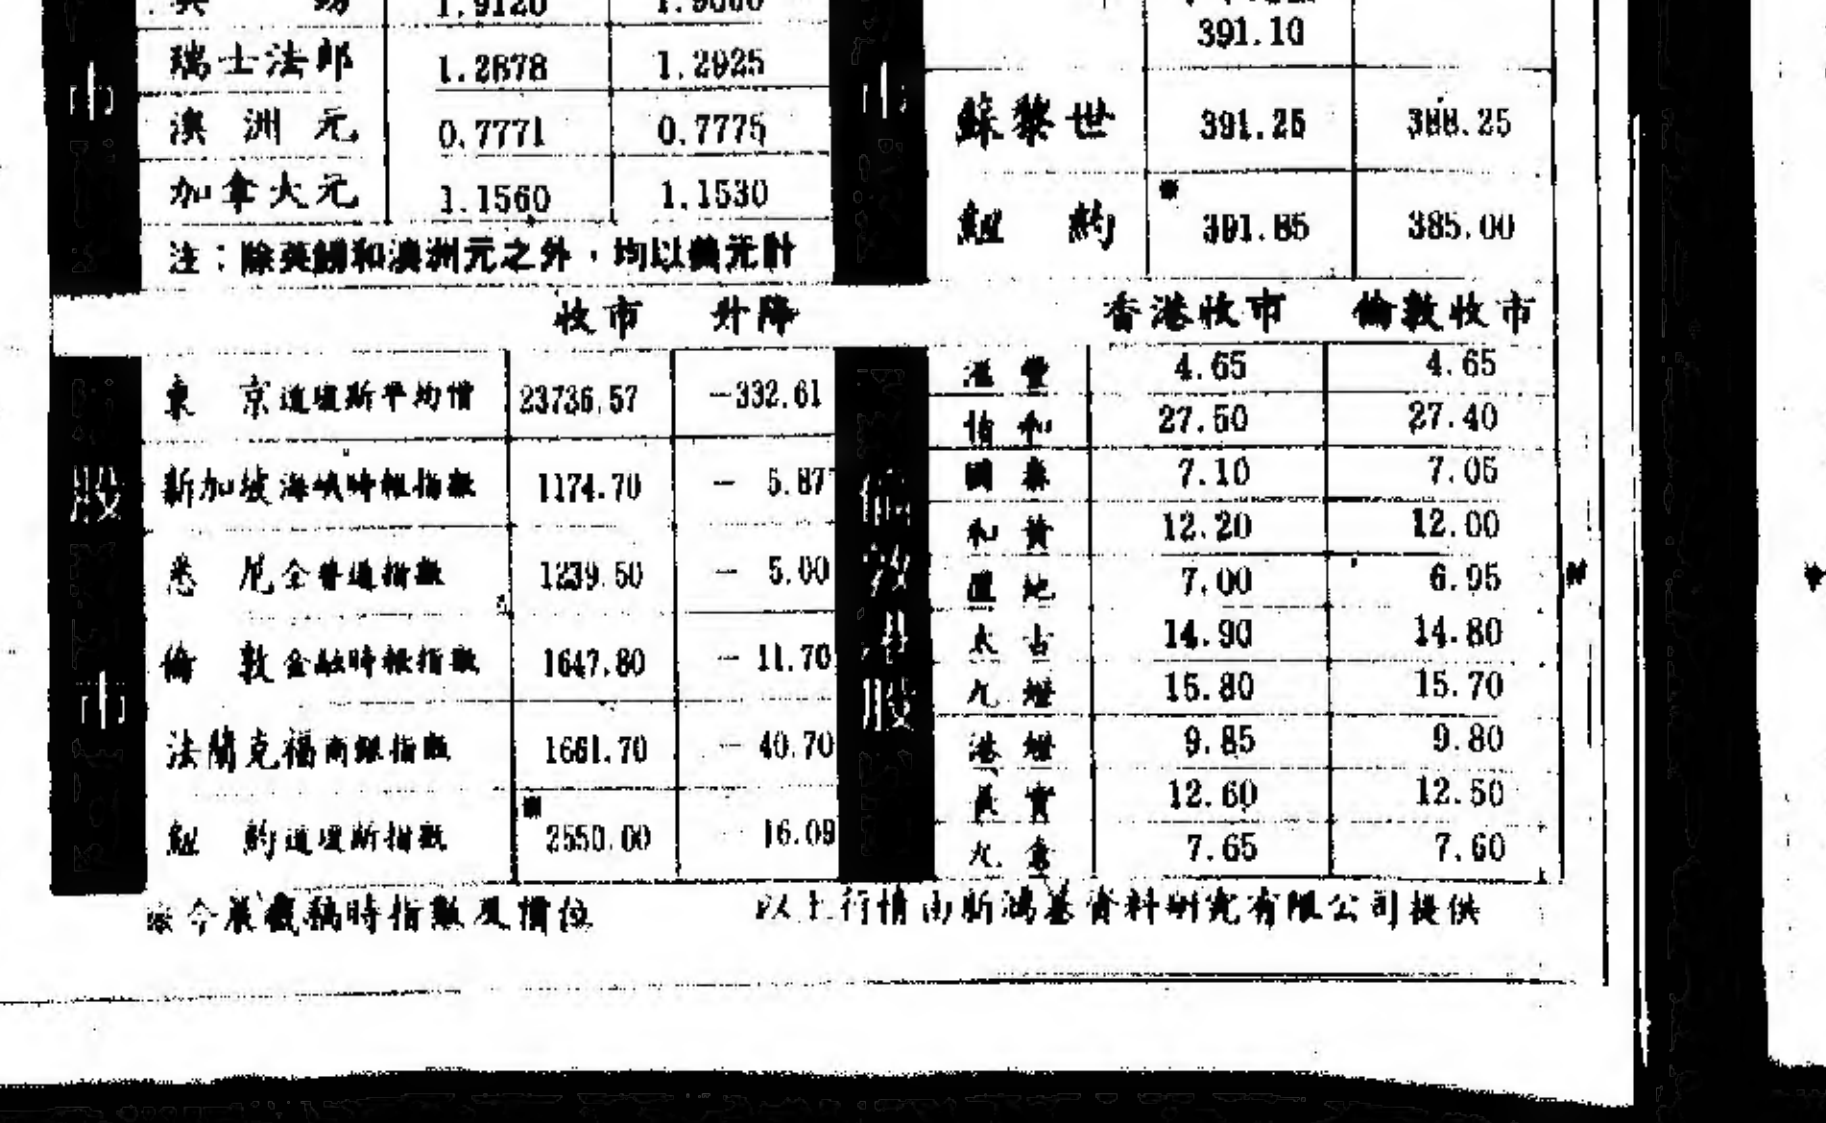 瑞士法郎 1.2878 1.2925
澳洲元 0.7771 0.7775
加拿大元 1.1560 1.1530
注：除英鎊和澳洲元之外，均以美元計
391.10
蘇黎世 391.25 388.25
紐約 ※391.85 385.00
收市 升降
東京道瓊斯平均價 23736.57 -332.61
新加坡海峽時報指數 1174.70 - 5.87
悉尼全普通指數 1239.50 - 5.00
倫敦金融時報指數 1647.80 - 11.70
法蘭克福商銀指數 1661.70 - 40.70
紐約道瓊斯指數 ※2550.00 - 16.09
股市
倫敦港股
香港收市 倫敦收市
滙豐 4.65 4.65
怡和 27.50 27.40
國泰 7.10 7.05
和黃 12.20 12.00
置地 7.00 6.95
太古 14.90 14.80
九燈 15.80 15.70
港燈 9.85 9.80
長實 12.60 12.50
九倉 7.65 7.60
※今晨截稿時指數及價位
以上行情由新鴻基資料研究有限公司提供